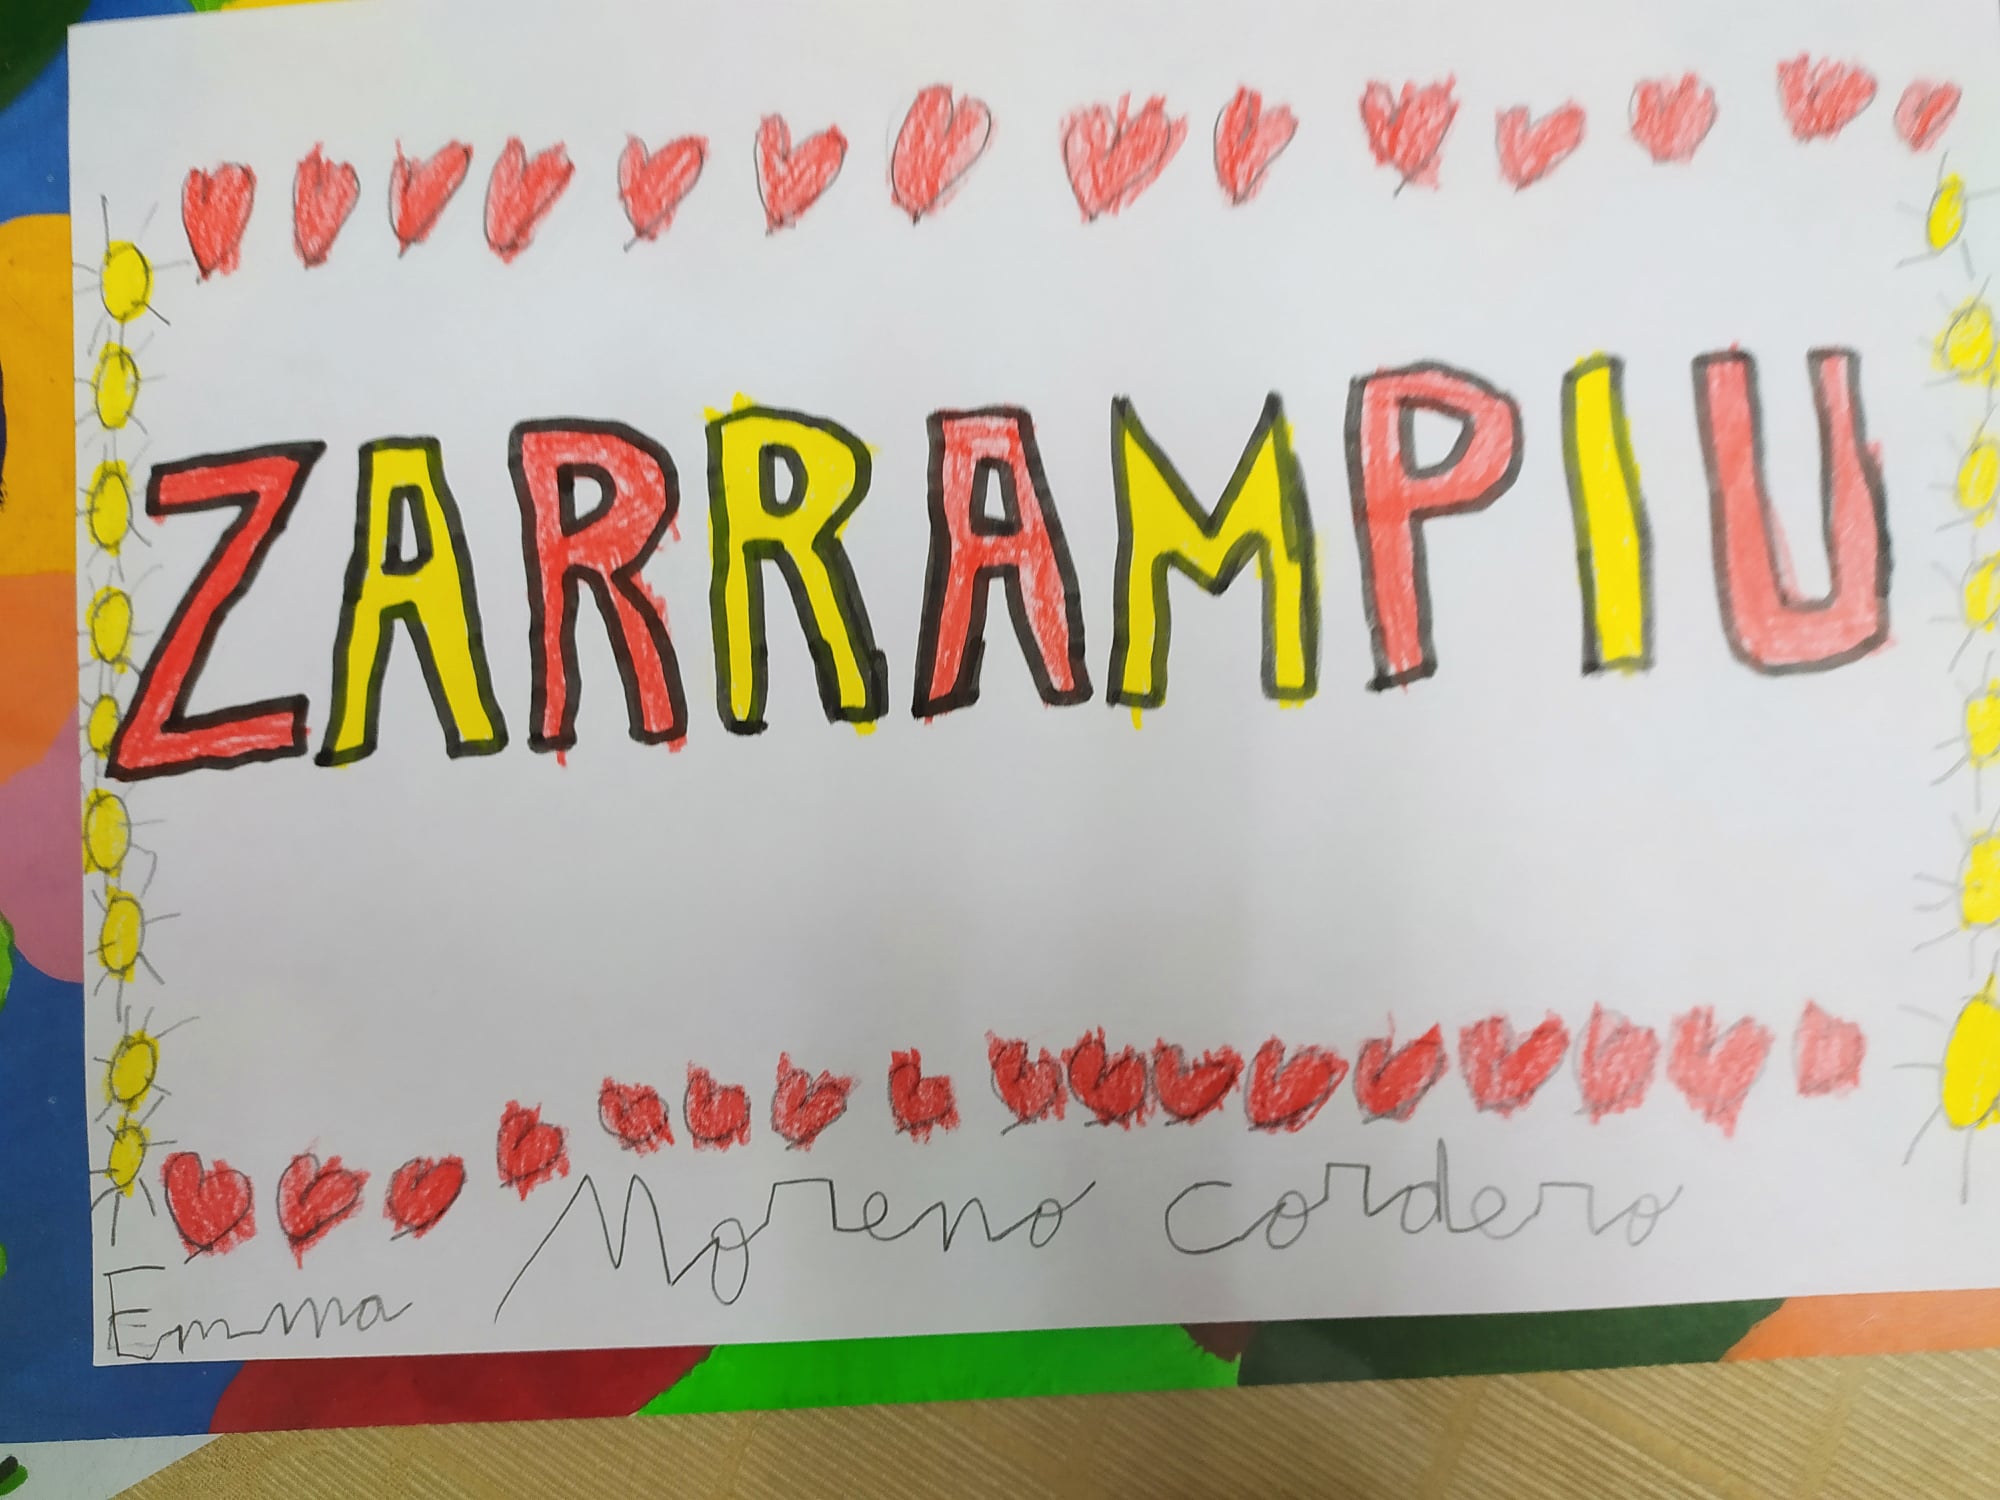 ZARRAMPIU
Moreno Cordero
Emma